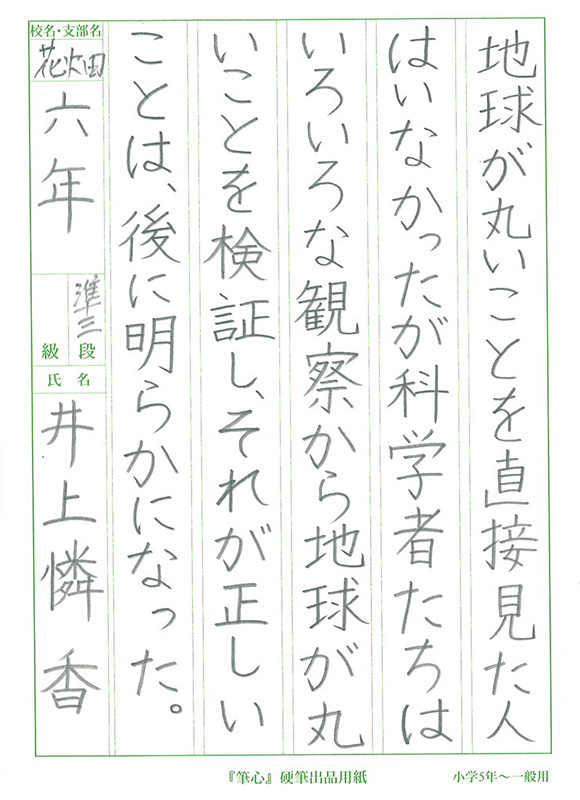 地球が丸いことを直接見た人
はいなかったが科学者たちは
いろいろな観察から地球が丸
いことを検証し、それが正しい
ことは、後に明らかになった。
校名・支部名
花畑
六年
準三
級 段
氏 名
井上憐香
『筆心』硬筆出品用紙
小学5年〜一般用